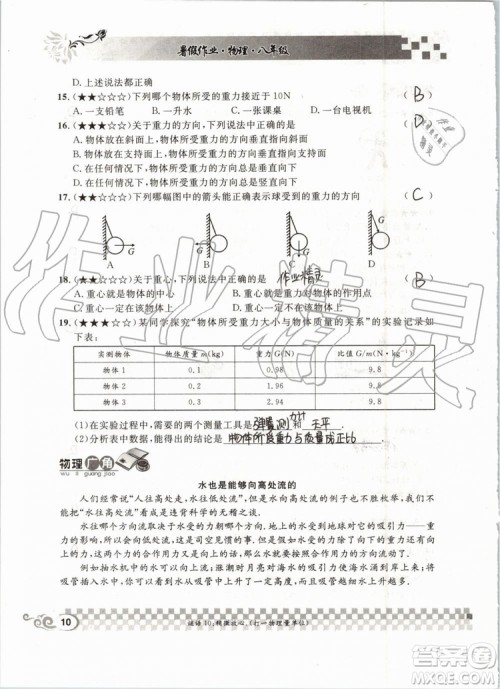 暑假作业·物理·八年级
D. 上述说法都正确
15. (★★☆☆☆)下列哪个物体所受的重力接近于10N (B)
A. 一支铅笔 B. 一升水 C. 一张课桌 D. 一台电视机
16. (★★☆☆☆)关于重力的方向,下列说法中正确的是 (D)
A. 物体放在斜面上时,重力的方向垂直指向斜面
B. 物体对支持面的压力方向就是物体所受重力的方向
C. 在任何情况下,物体所受重力的方向总是垂直指向物体的支持面
D. 在任何情况下,物体所受重力的方向总是竖直向下
17. (★★☆☆☆)下列哪幅图中的箭头能正确表示球受到的重力的方向 (C)
G G G G
A B C D
18. (★★☆☆☆)关于重心,下列说法正确的是 (B)
作业精灵
A. 重心就是物体的中心 B. 重心是重力对物体的作用点
C. 重心一定在该物体上 D. 重心一定不在该物体上
19. (★★★☆☆)某同学探究“物体所受重力大小与物体质量的关系”的实验记录如
下表:
实测物体 物体质量m(kg) 重力G(N) 比值G/m(N·kg⁻¹)
物体1 0.1 0.98 9.8
物体2 0.2 1.96 9.8
物体3 0.3 2.94 9.8
(1)在实验过程中,需要的两个测量工具是弹簧测力计和天平
(2)分析表中数据,能得出的结论是物体所受重力与质量成正比
物理广角
wu li guang jiao
水也是能够向高处流的
人们经常说“人往高处走,水往低处流”,水向高处流的例子也不胜枚举,
我们不能总是一概而论地说这是违背科学的无稽之谈。
水往哪个方向流动,取决于水受的力朝哪个方向。地球上的水受到一个——重
力的影响,所以我们往往会想当然地以为水就一定会往低处流。其实,只要水受到
其他方向的力的影响,并且这个力足够克服重力的话,水就会向高处流了。
例如抽水机的水向上流;涨潮时月亮的引力使海水涌动流上海岸来;将
吸管插入水中,水会在吸管中升高,甚至吸管越细,吸管里的水面越高等。
10
谜语10:稍微放心。(打一物理量单位)
作业精灵